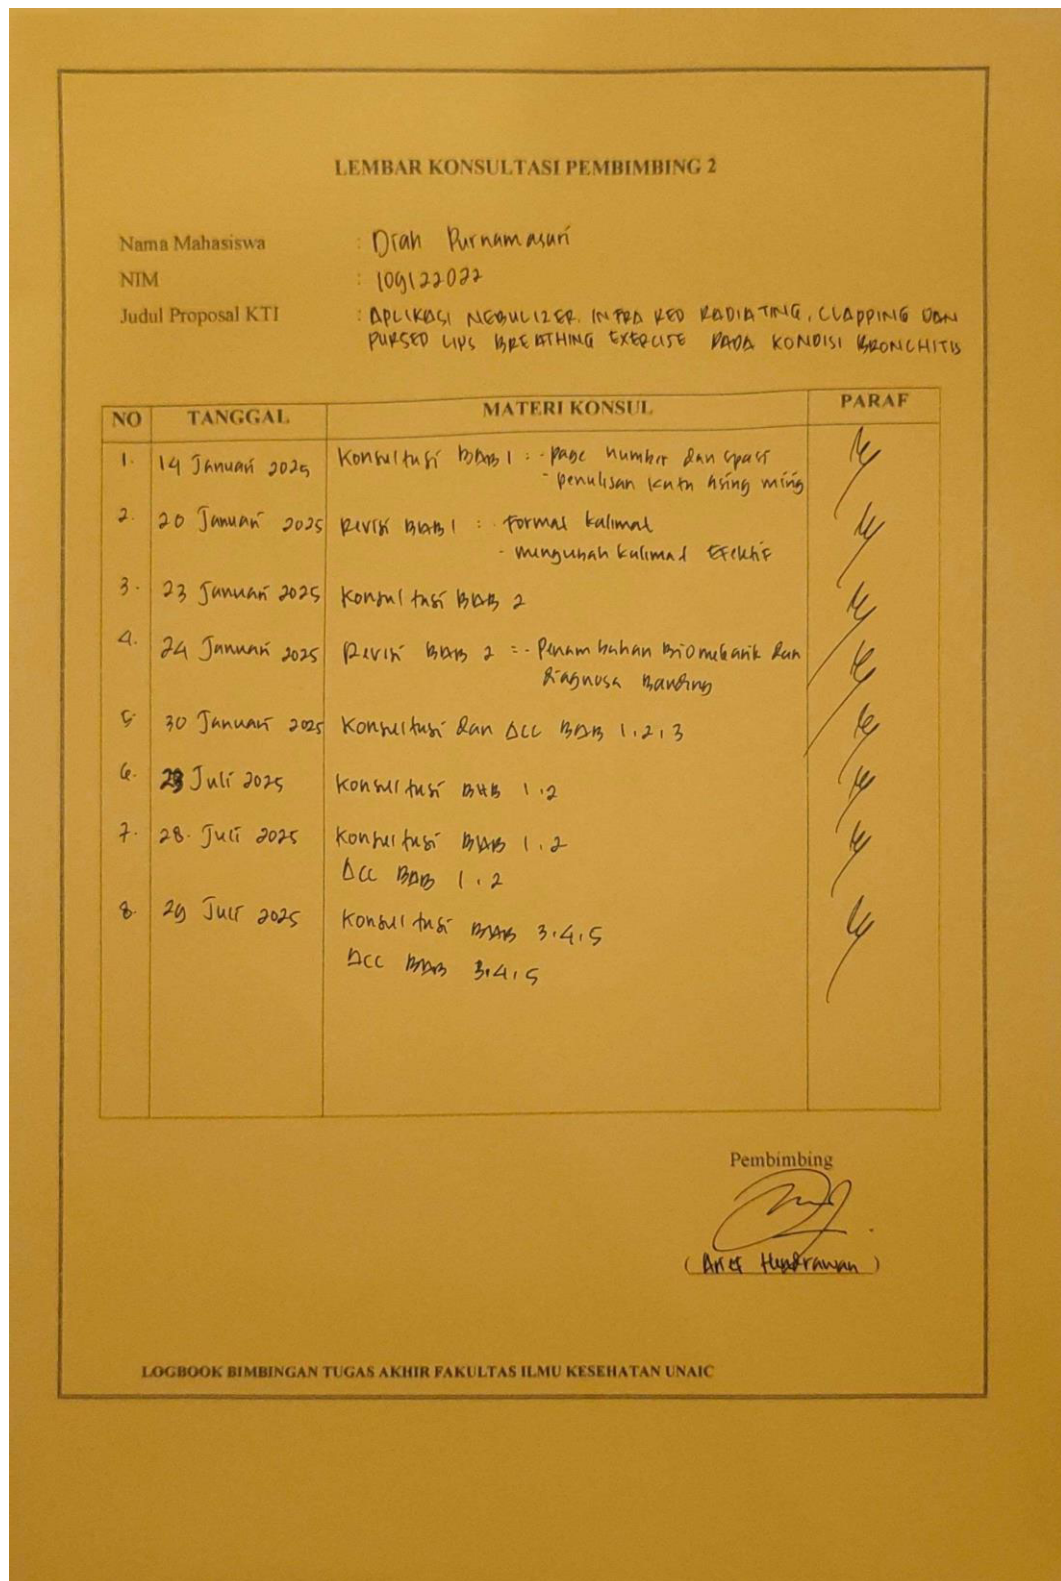 LEMBAR KONSULTASI PEMBIMBING 2
Nama Mahasiswa : Diah Purnamasari
NIM : 109122022
Judul Proposal KTI : APLIKASI NEBULIZER. INFRA RED RADIATING, CLAPPING DAN
PURSED LIPS BREATHING EXERCISE PADA KONDISI BRONCHITIS
NO TANGGAL MATERI KONSUL PARAF
1. 14 Januari 2025 Konsultasi BAB 1 : - page number dan spasi
- penulisan kata asing miring
2. 20 Januari 2025 Revisi BAB 1 : - Format kalimat
- mengubah kalimat Efektif
3. 23 Januari 2025 Konsultasi BAB 2
4. 24 Januari 2025 Revisi BAB 2 : - Penambahan Biomekanik dan
diagnosa Banding
5. 30 Januari 2025 Konsultasi dan ACC BAB 1.2.3
6. Juli 2025 Konsultasi BAB 1.2
7. 28. Juli 2025 Konsultasi BAB 1.2
ACC BAB 1.2
8. 29 Juli 2025 Konsultasi BAB 3.4.5
ACC BAB 3.4.5
Pembimbing
( Arief Hendrawan )
LOGBOOK BIMBINGAN TUGAS AKHIR FAKULTAS ILMU KESEHATAN UNAIC